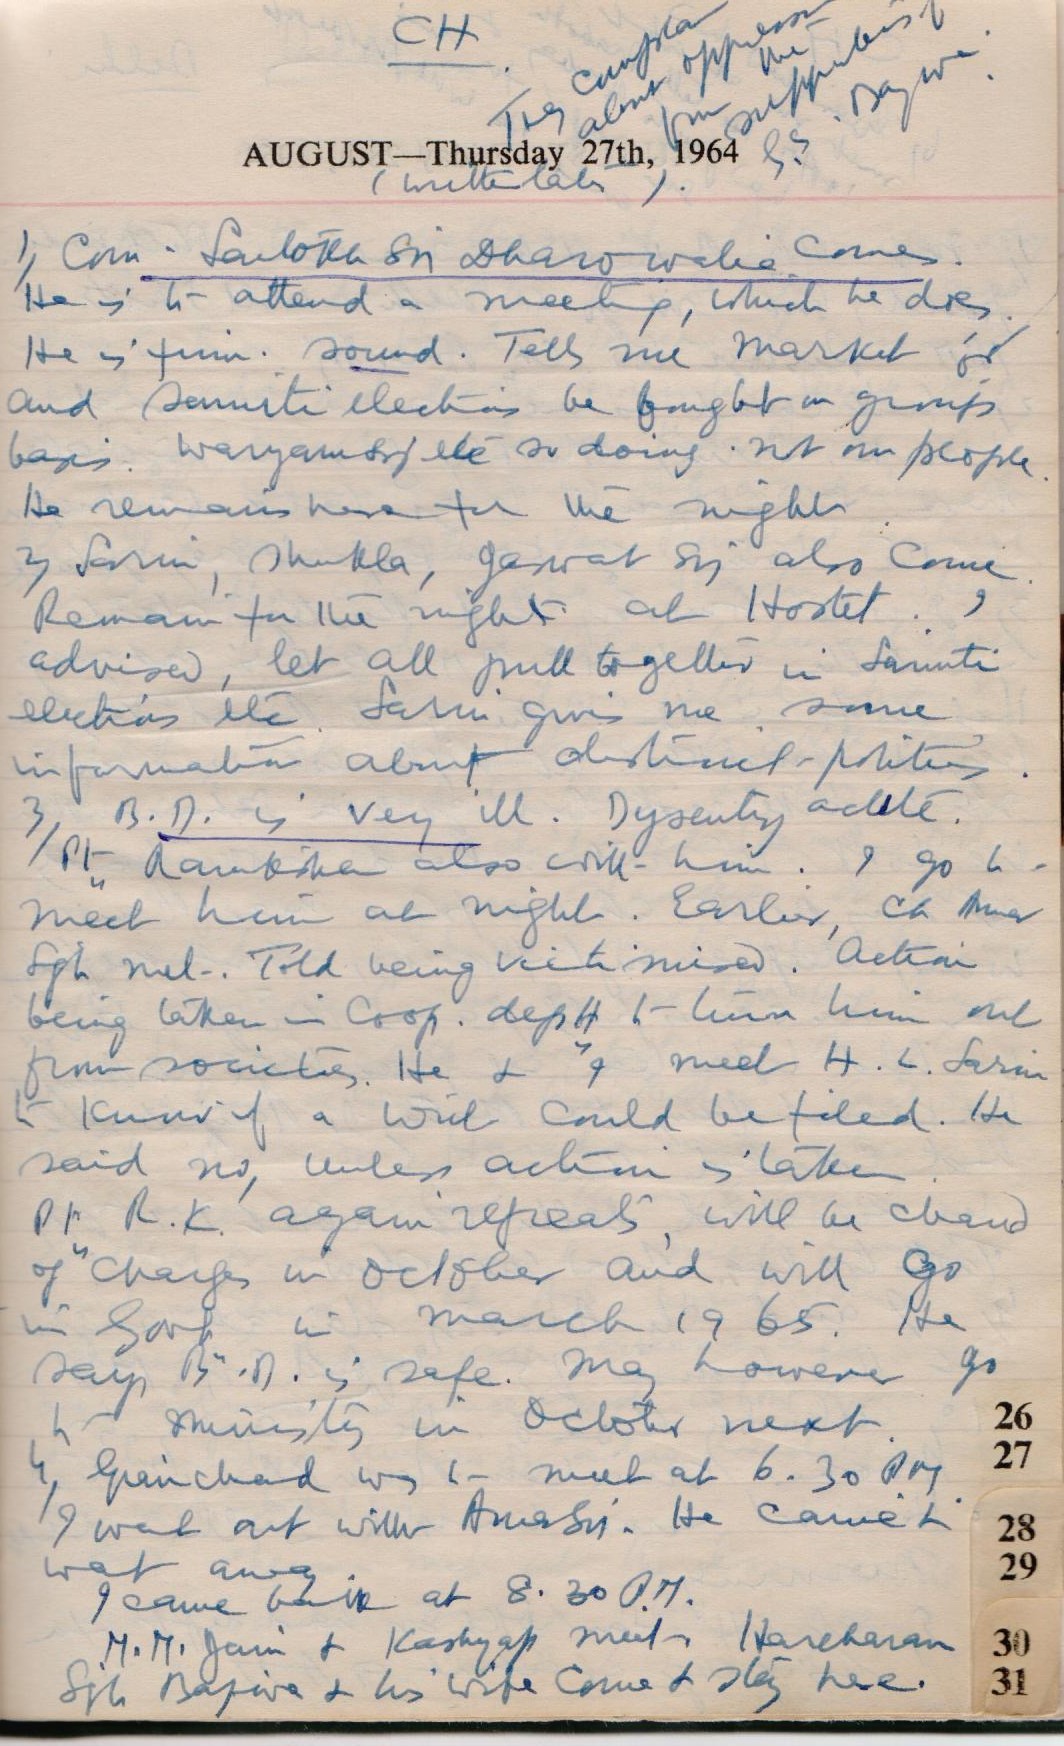 CH.
They complain
about oppression
from the
supporters of
AUGUST—Thursday 27th, 1964
(written late).
1) Com. Santokh Sgh Dharowalia comes.
He is to attend a meeting, which he does.
He is firm. sound. Tells me market
and Samiti elections be fought on groups
basis. Waryam Sgh etc so doing. not our people.
He remains here for the night.
2) Sarin, Shukla, Jaswat Sgh also come.
Remain for the night at Hostel. I
advised, let all pull together in Samiti
elections etc. Sarin gives me some
information about district-politics.
3) B.D. is very ill. Dysentry acute.
Pt. Ramkishan also with him. I go to
meet him at night. Earlier, Ch Amar
Sgh met. Told being victimised. Action
being taken in Coop. deptt to turn him out
from societies. He & I meet H.L. Sarin
to know if a writ could be filed. He
said no, unless action is taken.
Pt. R.K. again repeats, will be
of charges in October and will go
in Govt in March 1965. He
says B.D. is safe. May however go
to ministry in October next.
4) Gianchand was to meet at 6.30 PM
I went out with Amar Sgh. He came &
went away.
I came back at 8.30 P.M.
M.M. Jain & Kashyap meet. Harcharan
Sgh Bajwa & his wife come & stay here.
26
27
28
29
30
31